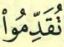 تُقَدِّمُواْ